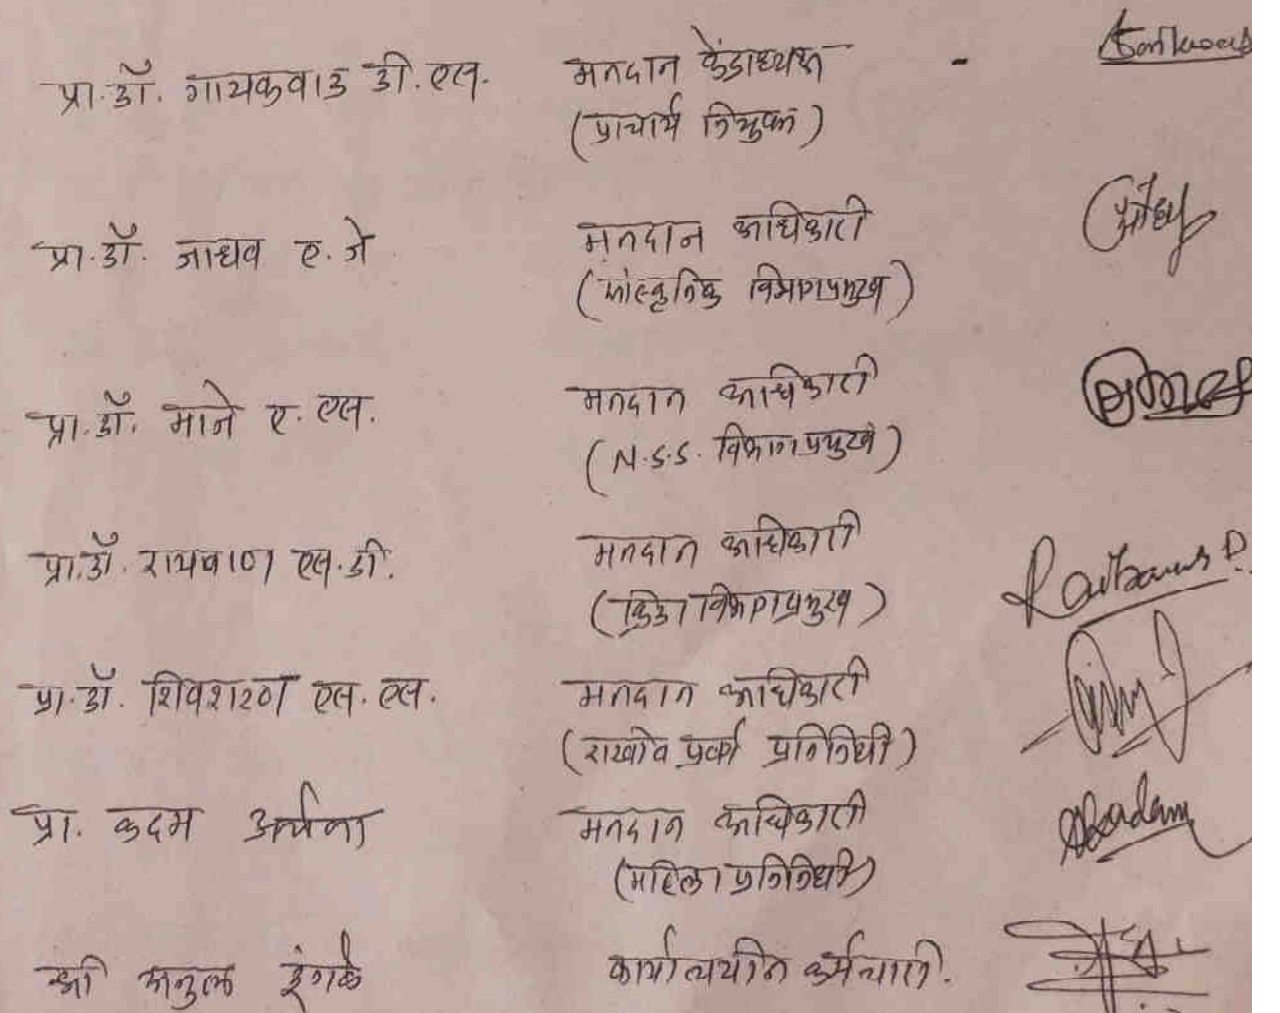 प्रा.डॉ. गायकवाड डी.एल. मतदान केंद्राध्यक्ष -
(प्राचार्य नियुक्त)
प्रा.डॉ. जाधव ए.जे. मतदान अधिकारी
(सांस्कृतिक विभागप्रमुख)
प्रा.डॉ. माने ए.एल. मतदान अधिकारी
(N.S.S. विभागप्रमुख)
प्रा.डॉ. रायबाण एल.डी. मतदान अधिकारी
(क्रिडा विभागप्रमुख)
प्रा.डॉ. शिवशरण एल.एल. मतदान अधिकारी
(राखीव प्रवर्ग प्रतिनिधी)
प्रा. कदम अर्चना मतदान अधिकारी
(महिला प्रतिनिधी)
Akadam
श्री अतुल इंगळे कार्यालयीन कर्मचारी.